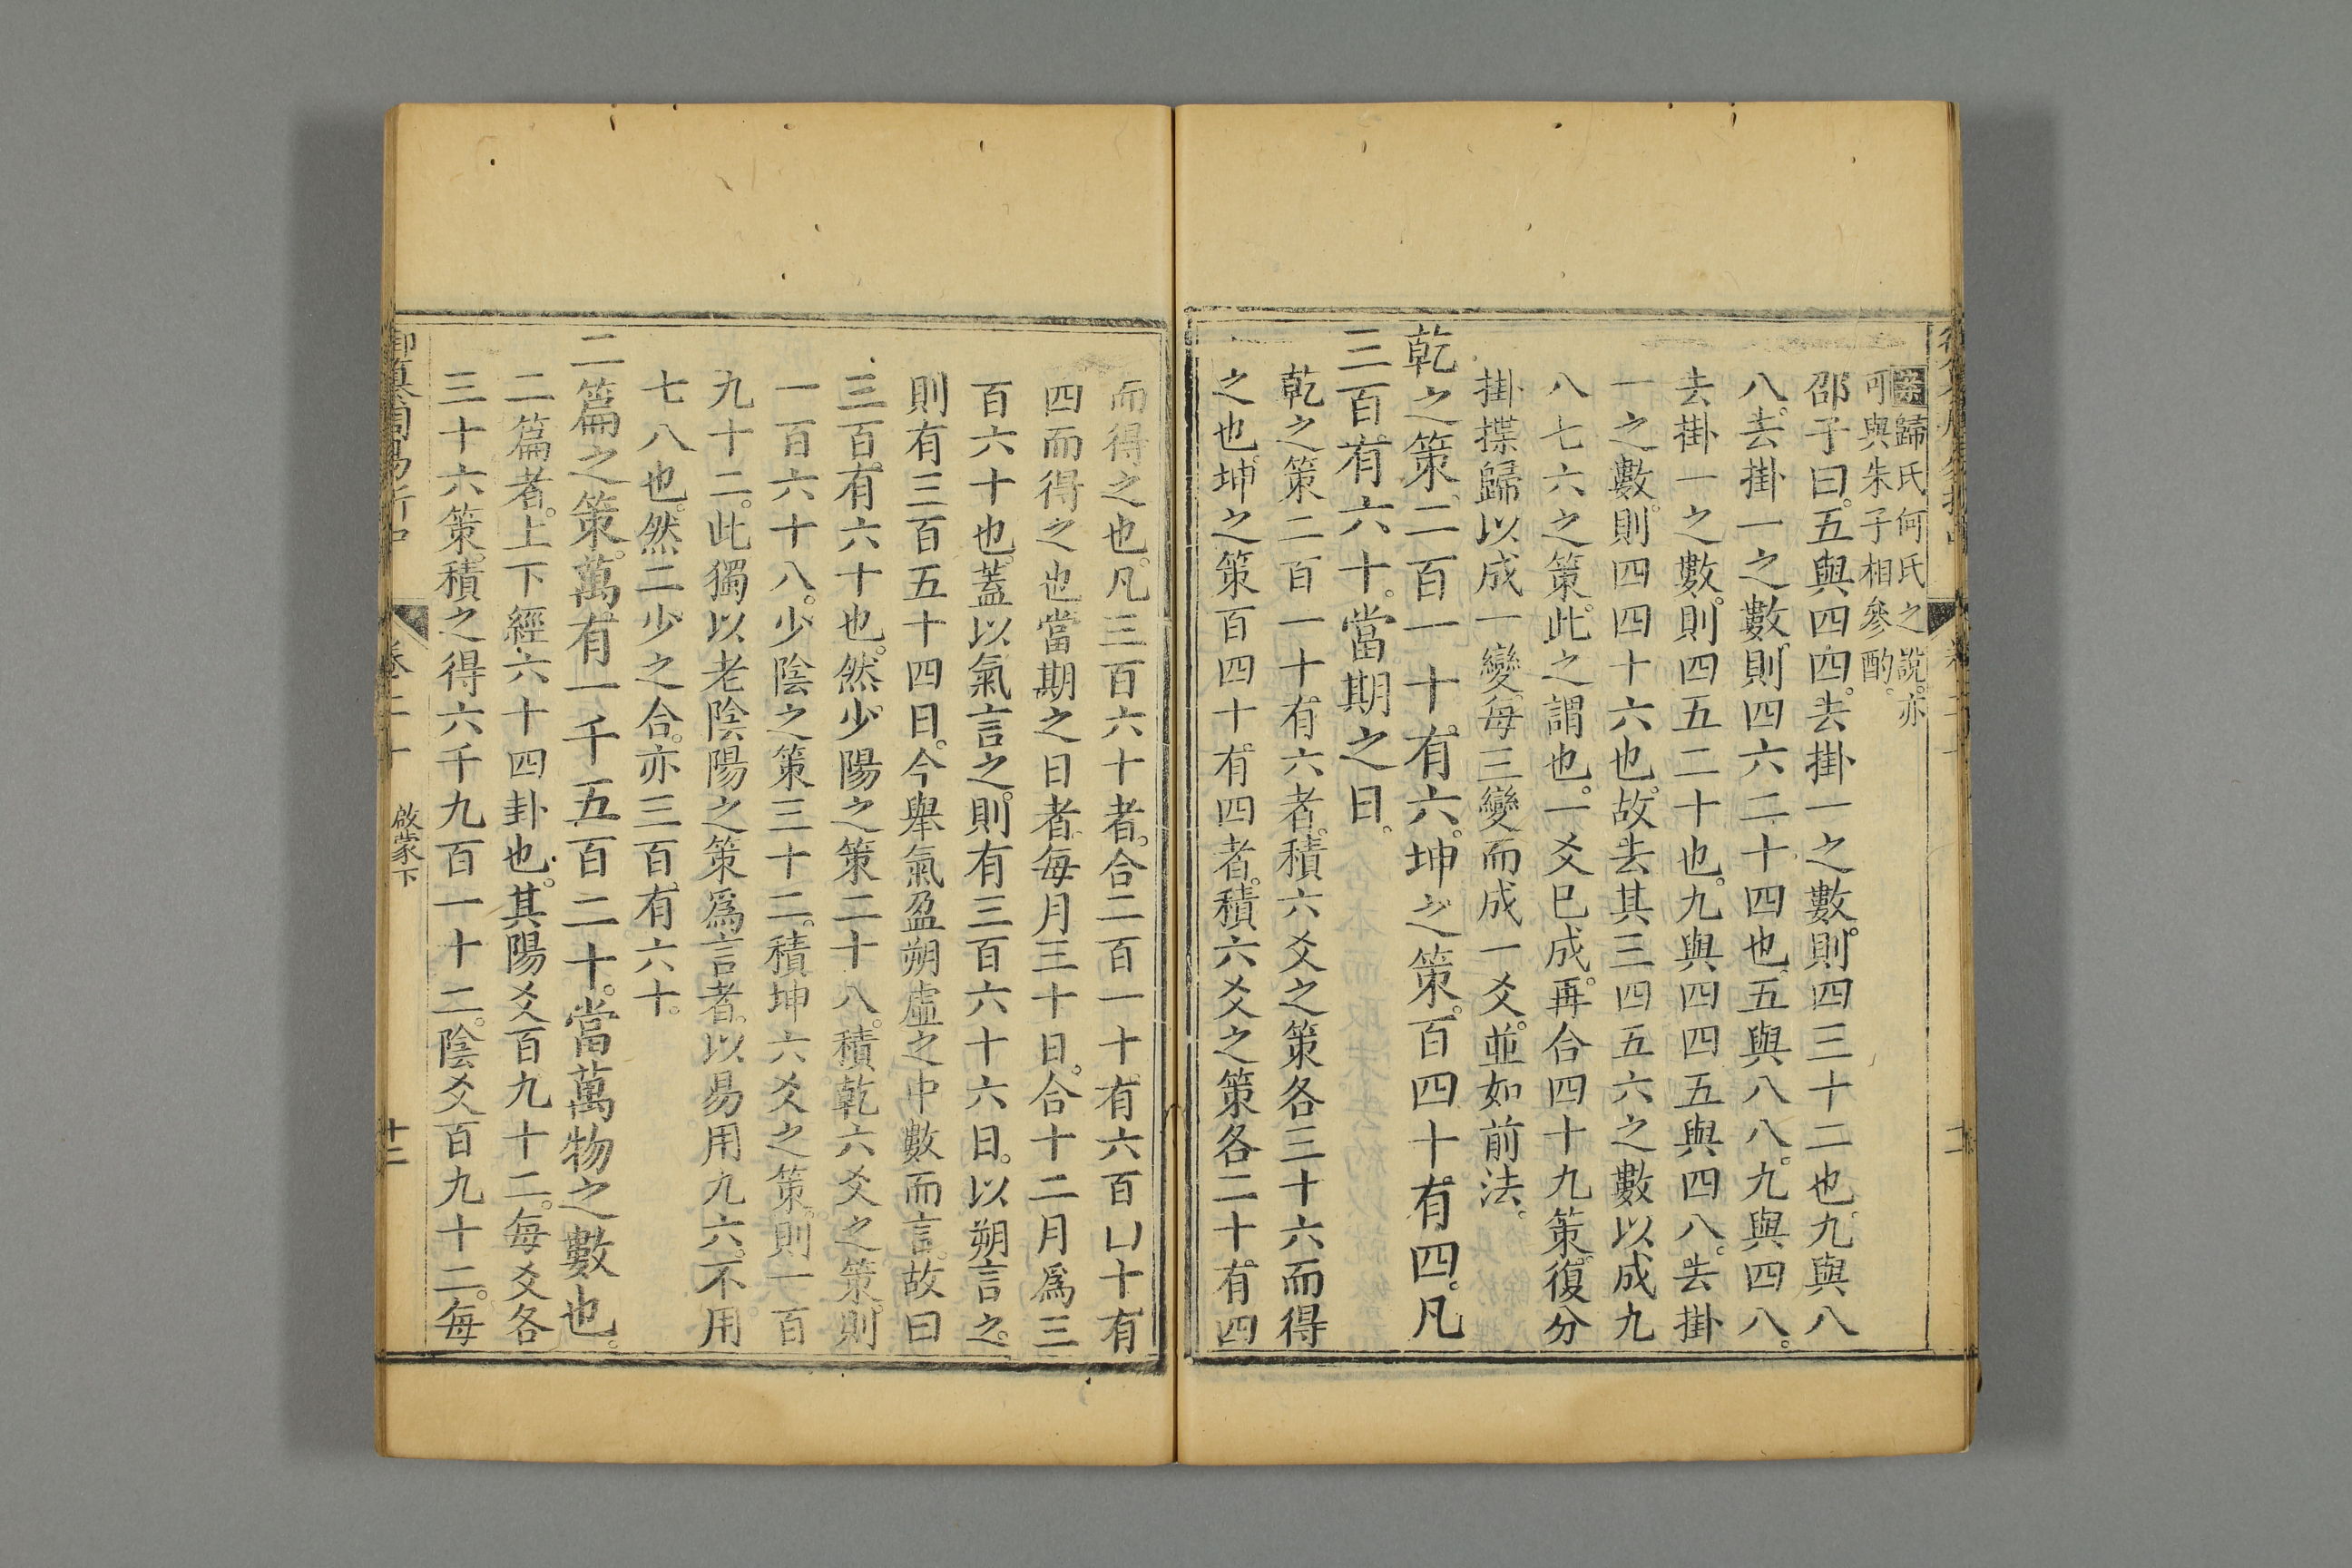 歸氏何氏之說。亦
可與朱子相參酌。
邵子曰。五與四四。去掛一之數。則四三十二也。九與八
八。去掛一之數。則四六二十四也。五與八八。九與四八。
去掛一之數。則四五二十也。九與四四。五與四八。去掛
一之數。則四四十六也。故去其三四五六之數以成九
八七六之策。此之謂也。一爻已成。再合四十九策。復分
掛揲歸以成一變。每三變而成一爻。並如前法。
乾之策。二百一十有六。坤之策。百四十有四。凡
三百有六十。當期之日。
乾之策二百一十有六者。積六爻之策各三十六而得
之也。坤之策百四十有四者。積六爻之策各二十有四
而得之也。凡三百六十者。合二百一十有六百凵十有
四而得之也當期之日者。每月三十日。合十二月爲三
百六十也。蓋以氣言之。則有三百六十六日。以朔言之。
則有三百五十四日。今舉氣盈朔虛之中數而言。故曰
三百有六十也。然少陽之策二十八。積乾六爻之策。則
一百六十八。少陰之策三十二。積坤六爻之策。則一百
九十二。此獨以老陰陽之策爲言者。以易用九六。不用
七八也。然二少之合。亦三百有六十。
二篇之策。萬有一千五百二十。當萬物之數也。
二篇者。上下經六十四卦也。其陽爻百九十二。每爻各
三十六策。積之得六千九百一十二。陰爻百九十二。每
御纂周易折中
卷二十
啟蒙下
十二